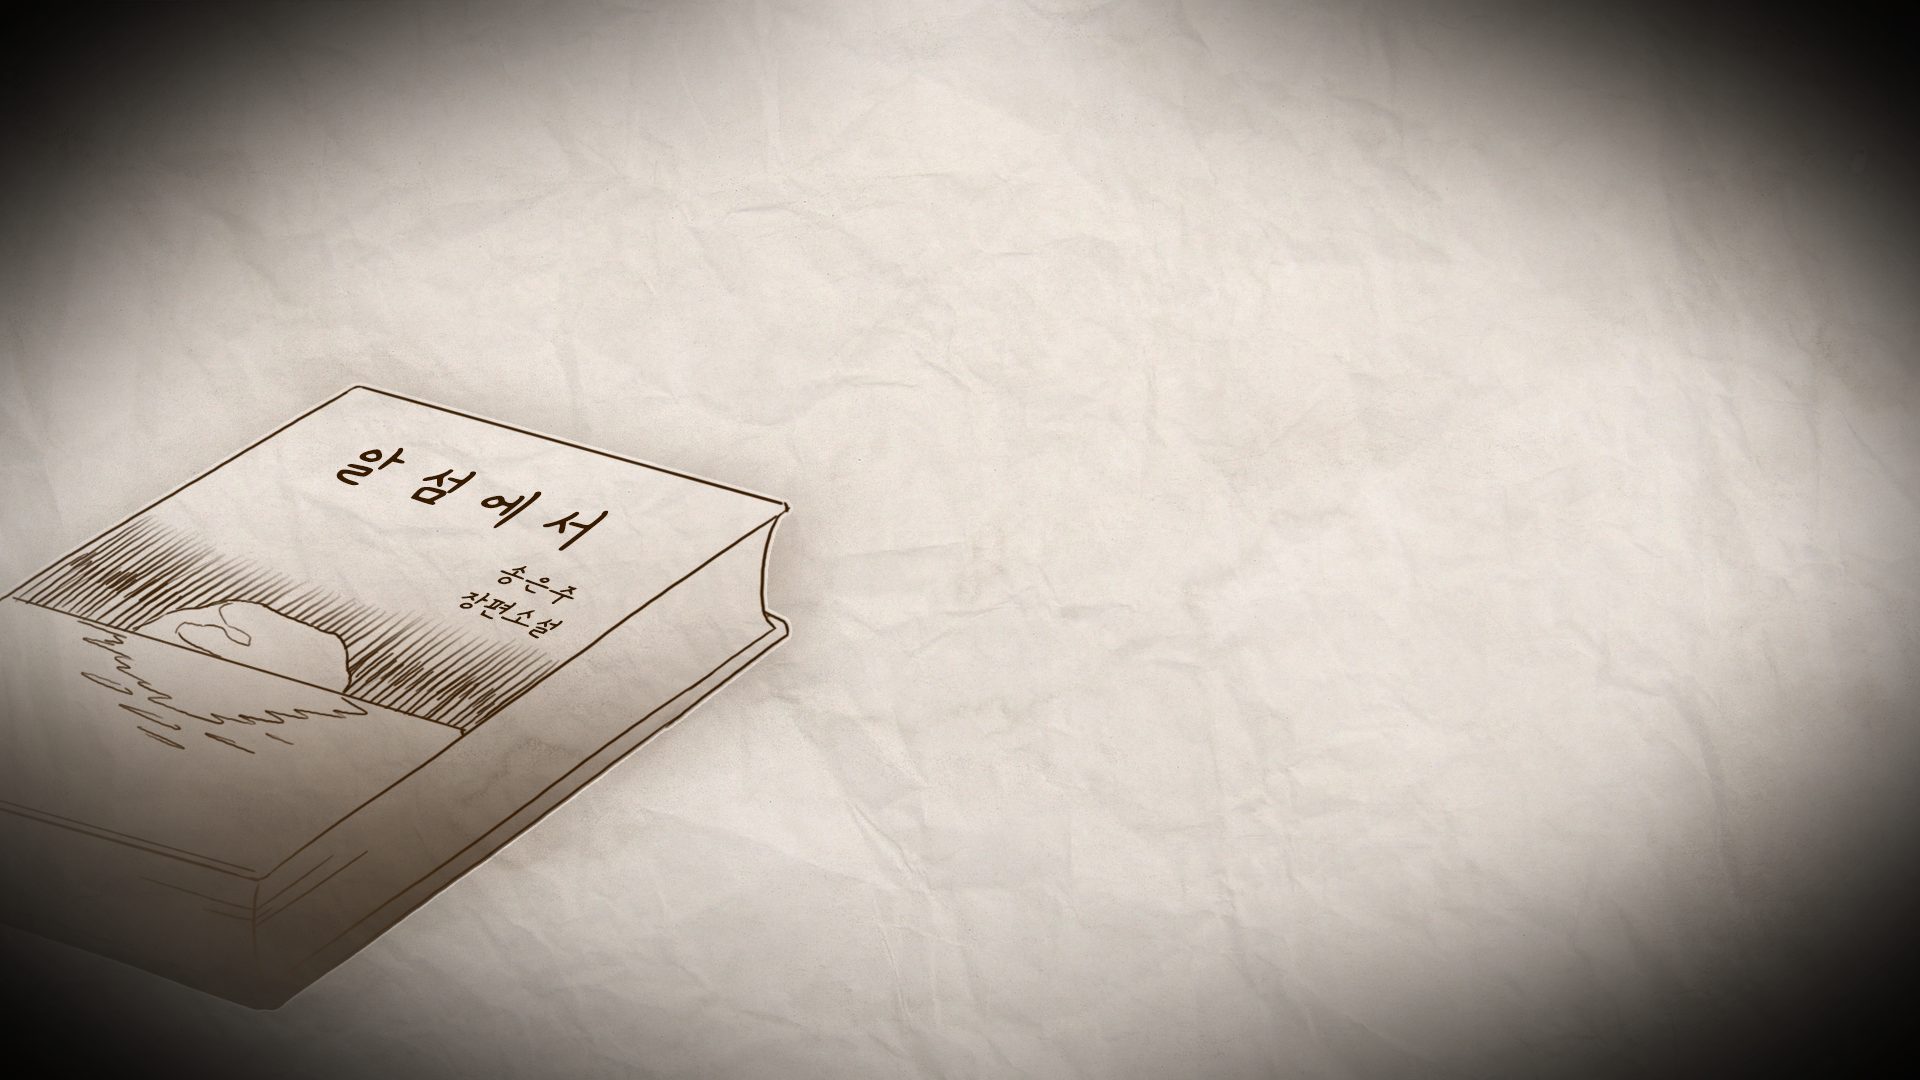 알섬에서
송은주
장편소설